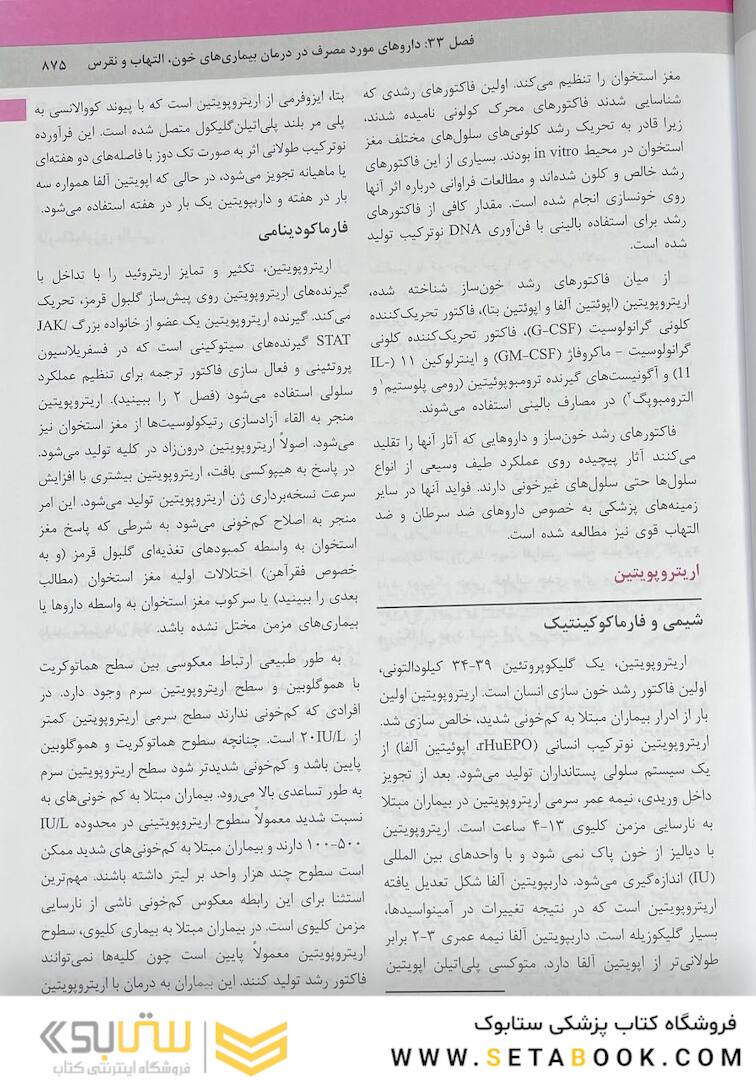 فصل ۳۳: داروهای مورد مصرف در درمان بیماری‌های خون، التهاب و نقرس ۸۷۵
مغز استخوان را تنظیم می‌کند. اولین فاکتورهای رشدی که
شناسایی شدند فاکتورهای محرک کولونی نامیده شدند،
زیرا قادر به تحریک رشد کلونی‌های سلول‌های مختلف مغز
استخوان در محیط in vitro بودند. بسیاری از این فاکتورهای
رشد خالص و کلون شده‌اند و مطالعات فراوانی درباره اثر آنها
روی خونسازی انجام شده است. مقدار کافی از فاکتورهای
رشد برای استفاده بالینی با فن‌آوری DNA نوترکیب تولید
شده است.
از میان فاکتورهای رشد خون‌ساز شناخته شده،
اریتروپویتین (اپوئتین آلفا و اپوئتین بتا)، فاکتور تحریک‌کننده
کلونی گرانولوسیت (G-CSF)، فاکتور تحریک‌کننده کلونی
گرانولوسیت – ماکروفاژ (GM-CSF) و اینترلوکین ۱۱ (IL-
11) و آگونیست‌های گیرنده ترومبوپوئیتین (رومی پلوستیم۱ و
الترومبوپگ۲) در مصارف بالینی استفاده می‌شوند.
فاکتورهای رشد خون‌ساز و داروهایی که آثار آنها را تقلید
می‌کنند آثار پیچیده روی عملکرد طیف وسیعی از انواع
سلول‌ها حتی سلول‌های غیرخونی دارند. فواید آنها در سایر
زمینه‌های پزشکی به خصوص داروهای ضد سرطان و ضد
التهاب قوی نیز مطالعه شده است.
اریتروپویتین
شیمی و فارماکوکینتیک
اریتروپویتین، یک گلیکوپروتئین ۳۹-۳۴ کیلودالتونی،
اولین فاکتور رشد خون سازی انسان است. اریتروپویتین اولین
بار از ادرار بیماران مبتلا به کم‌خونی شدید، خالص سازی شد.
اریتروپویتین نوترکیب انسانی (rHuEPO، اپوئیتین آلفا) از
یک سیستم سلولی پستانداران تولید می‌شود. بعد از تجویز
داخل وریدی، نیمه عمر سرمی اریتروپویتین در بیماران مبتلا
به نارسایی مزمن کلیوی ۱۳-۴ ساعت است. اریتروپویتین
با دیالیز از خون پاک نمی شود و با واحدهای بین المللی
(IU) اندازه‌گیری می‌شود. داربپویتین آلفا شکل تعدیل یافته
اریتروپویتین است که در نتیجه تغییرات در آمینواسیدها،
بسیار گلیکوزیله است. داربپویتین آلفا نیمه عمری ۳-۲ برابر
طولانی‌تر از اپویتین آلفا دارد. متوکسی پلی‌اتیلن اپویتین
بتا، ایزوفرمی از اریتروپویتین است که با پیوند کووالانسی به
پلی مر بلند پلی‌اتیلن‌گلیکول متصل شده است. این فرآورده
نوترکیب طولانی اثر به صورت تک دوز با فاصله‌های دو هفته‌ای
یا ماهیانه تجویز می‌شود، در حالی که اپویتین آلفا همواره سه
بار در هفته و داربپویتین یک بار در هفته استفاده می‌شود.
فارماکودینامی
اریتروپویتین، تکثیر و تمایز اریتروئید را با تداخل با
گیرنده‌های اریتروپویتین روی پیش‌ساز گلبول قرمز، تحریک
می‌کند. گیرنده اریتروپویتین یک عضو از خانواده بزرگ JAK/
STAT گیرنده‌های سیتوکینی است که در فسفریلاسیون
پروتئینی و فعال سازی فاکتور ترجمه برای تنظیم عملکرد
سلولی استفاده می‌شود (فصل ۲ را ببینید). اریتروپویتین
منجر به القاء آزادسازی رتیکولوسیت‌ها از مغز استخوان نیز
می‌شود. اصولاً اریتروپویتین درون‌زاد در کلیه تولید می‌شود.
در پاسخ به هیپوکسی بافت، اریتروپویتین بیشتری با افزایش
سرعت نسخه‌برداری ژن اریتروپویتین تولید می‌شود. این امر
منجر به اصلاح کم‌خونی می‌شود به شرطی که پاسخ مغز
استخوان به واسطه کمبودهای تغذیه‌ای گلبول قرمز (و به
خصوص فقرآهن) اختلالات اولیه مغز استخوان (مطالب
بعدی را ببینید) یا سرکوب مغز استخوان به واسطه داروها یا
بیماری‌های مزمن مختل نشده باشد.
به طور طبیعی ارتباط معکوسی بین سطح هماتوکریت
با هموگلوبین و سطح اریتروپویتین سرم وجود دارد. در
افرادی که کم‌خونی ندارند سطح سرمی اریتروپویتین کمتر
از ۲۰IU/L است. چنانچه سطوح هماتوکریت و هموگلوبین
پایین باشد و کم‌خونی شدیدتر شود سطح اریتروپویتین سرم
به طور تصاعدی بالا می‌رود. بیماران مبتلا به کم خونی‌های به
نسبت شدید معمولاً سطوح اریتروپویتینی در محدوده IU/L
۵۰۰-۱۰۰ دارند و بیماران مبتلا به کم‌خونی‌های شدید ممکن
است سطوح چند هزار واحد بر لیتر داشته باشند. مهم‌ترین
استثنا برای این رابطه معکوس کم‌خونی ناشی از نارسایی
مزمن کلیوی است. در بیماران مبتلا به بیماری کلیوی، سطوح
اریتروپویتین معمولاً پایین است چون کلیه‌ها نمی‌توانند
فاکتور رشد تولید کنند. این بیماران به درمان با اریتروپویتین
فروشگاه کتاب پزشکی ستابوک
WWW.SETABOOK.COM
ستابوک
فروشگاه اینترنتی کتاب